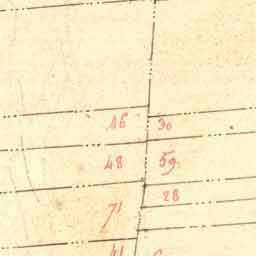 46 30
48 59
28
71
41